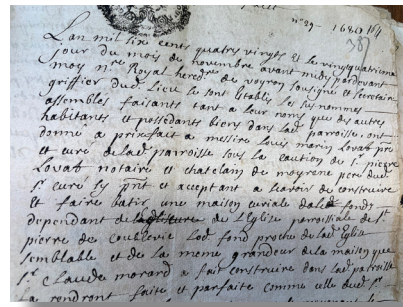 n° 29 - 1680 164
387
Lan mil six cents quatre vingts et le vingtquatriem
jour du mois de novembre avant midy pardevant
moy n.re Royal hered.re de voyron soubsigné et secretaire
greffier dud. Lieu se sont establis les sus nommes
assembles faisants tant a leur noms que des autres
habitants et possedants biens dans lad. parroisse, ont
donné a prixfait a messire louis marin Lovat p.re
et curé de lad. parroisse sous la caution de s.r pierre
Lovat notaire et chatelain de moyrene pere dud.
s.r curé icy p.nt et acceptant a scavoir de construire
et faire batir une maison curiale de le fonds
dependant de la de l'Eglise parroissiale de s.t
pierre de coublevie led. fond proche de lad. Eglise
semblable et de la meme grandeur de la maison que
s.r Claude morard a fait construire dans lad. parroisse
a rendront faite et parfaite comme celle dud. s.r